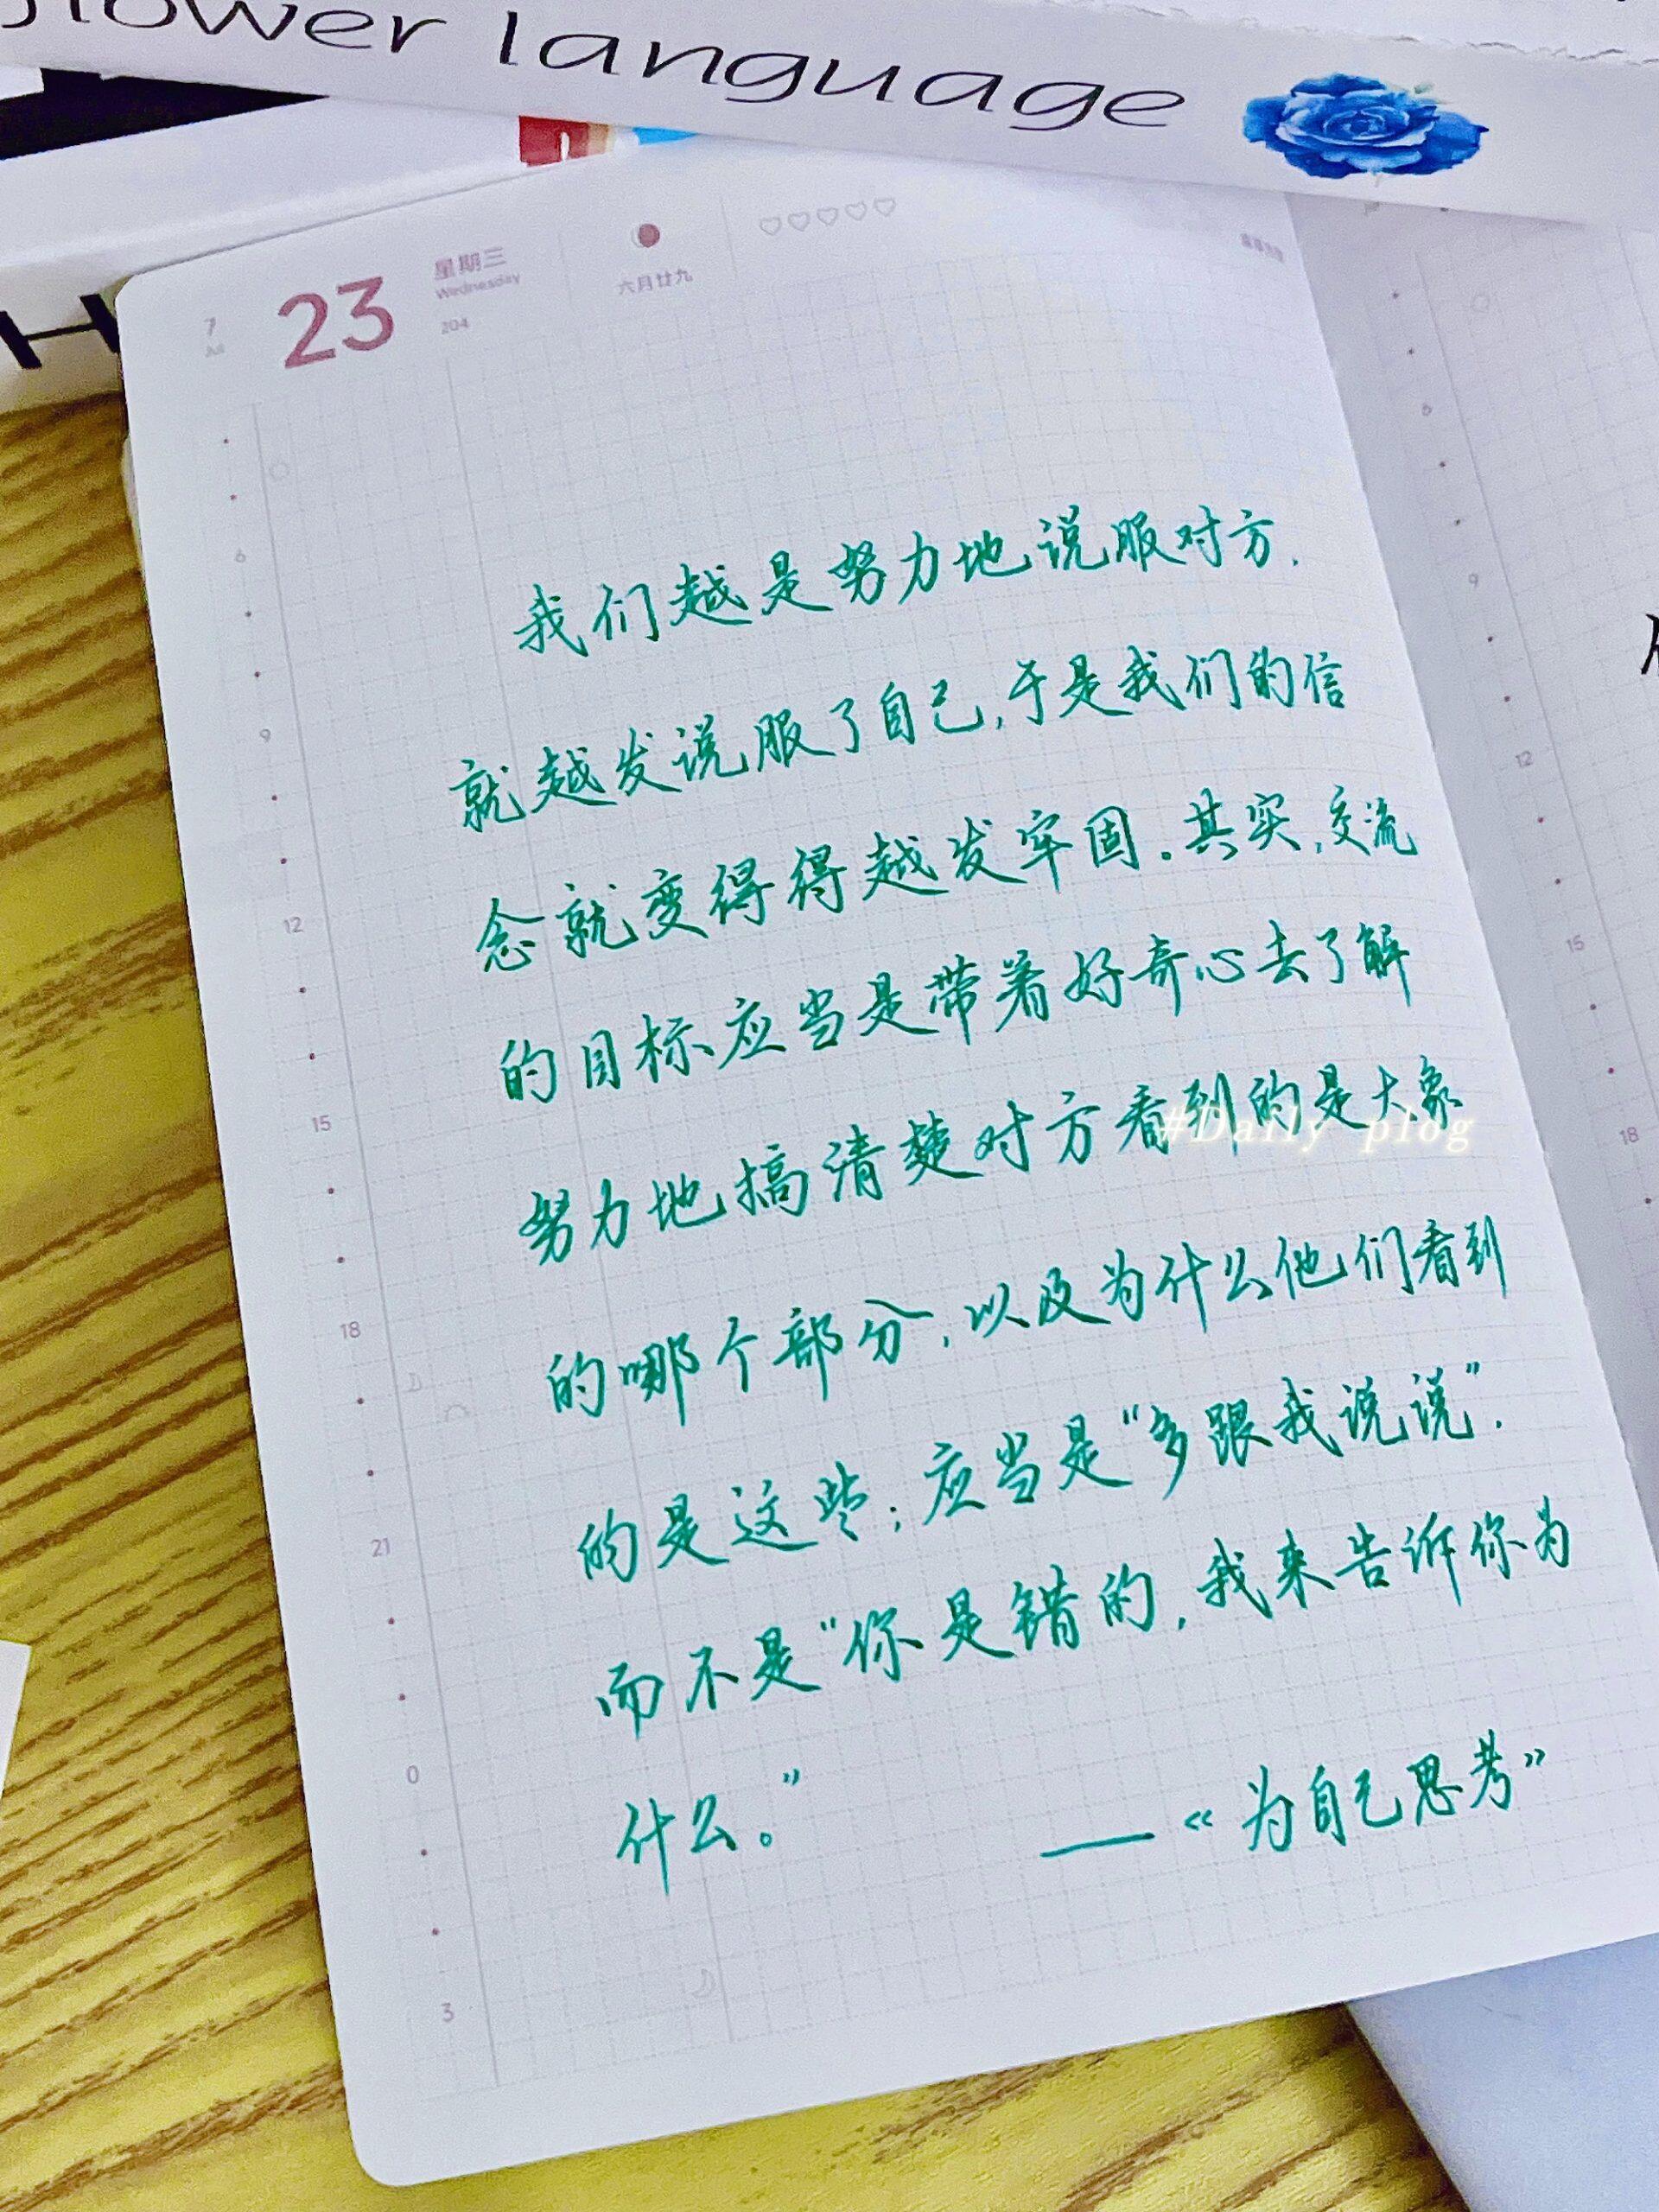 flower language
7
Jul
23
星期三
Wednesday
204
六月廿九
我们越是努力地说服对方,
就越发说服了自己,于是我们的信
念就变得得越发牢固。其实,交流
的目标应当是带着好奇心去了解
努力地搞清楚对方看到的是大象
#Daily plog
的哪个部分,以及为什么他们看到
的是这些;应当是“多跟我说说”.
而不是“你是错的,我来告诉你为
什么。”
——《为自己思考》
6
9
12
15
18
21
0
3
6
9
12
15
18